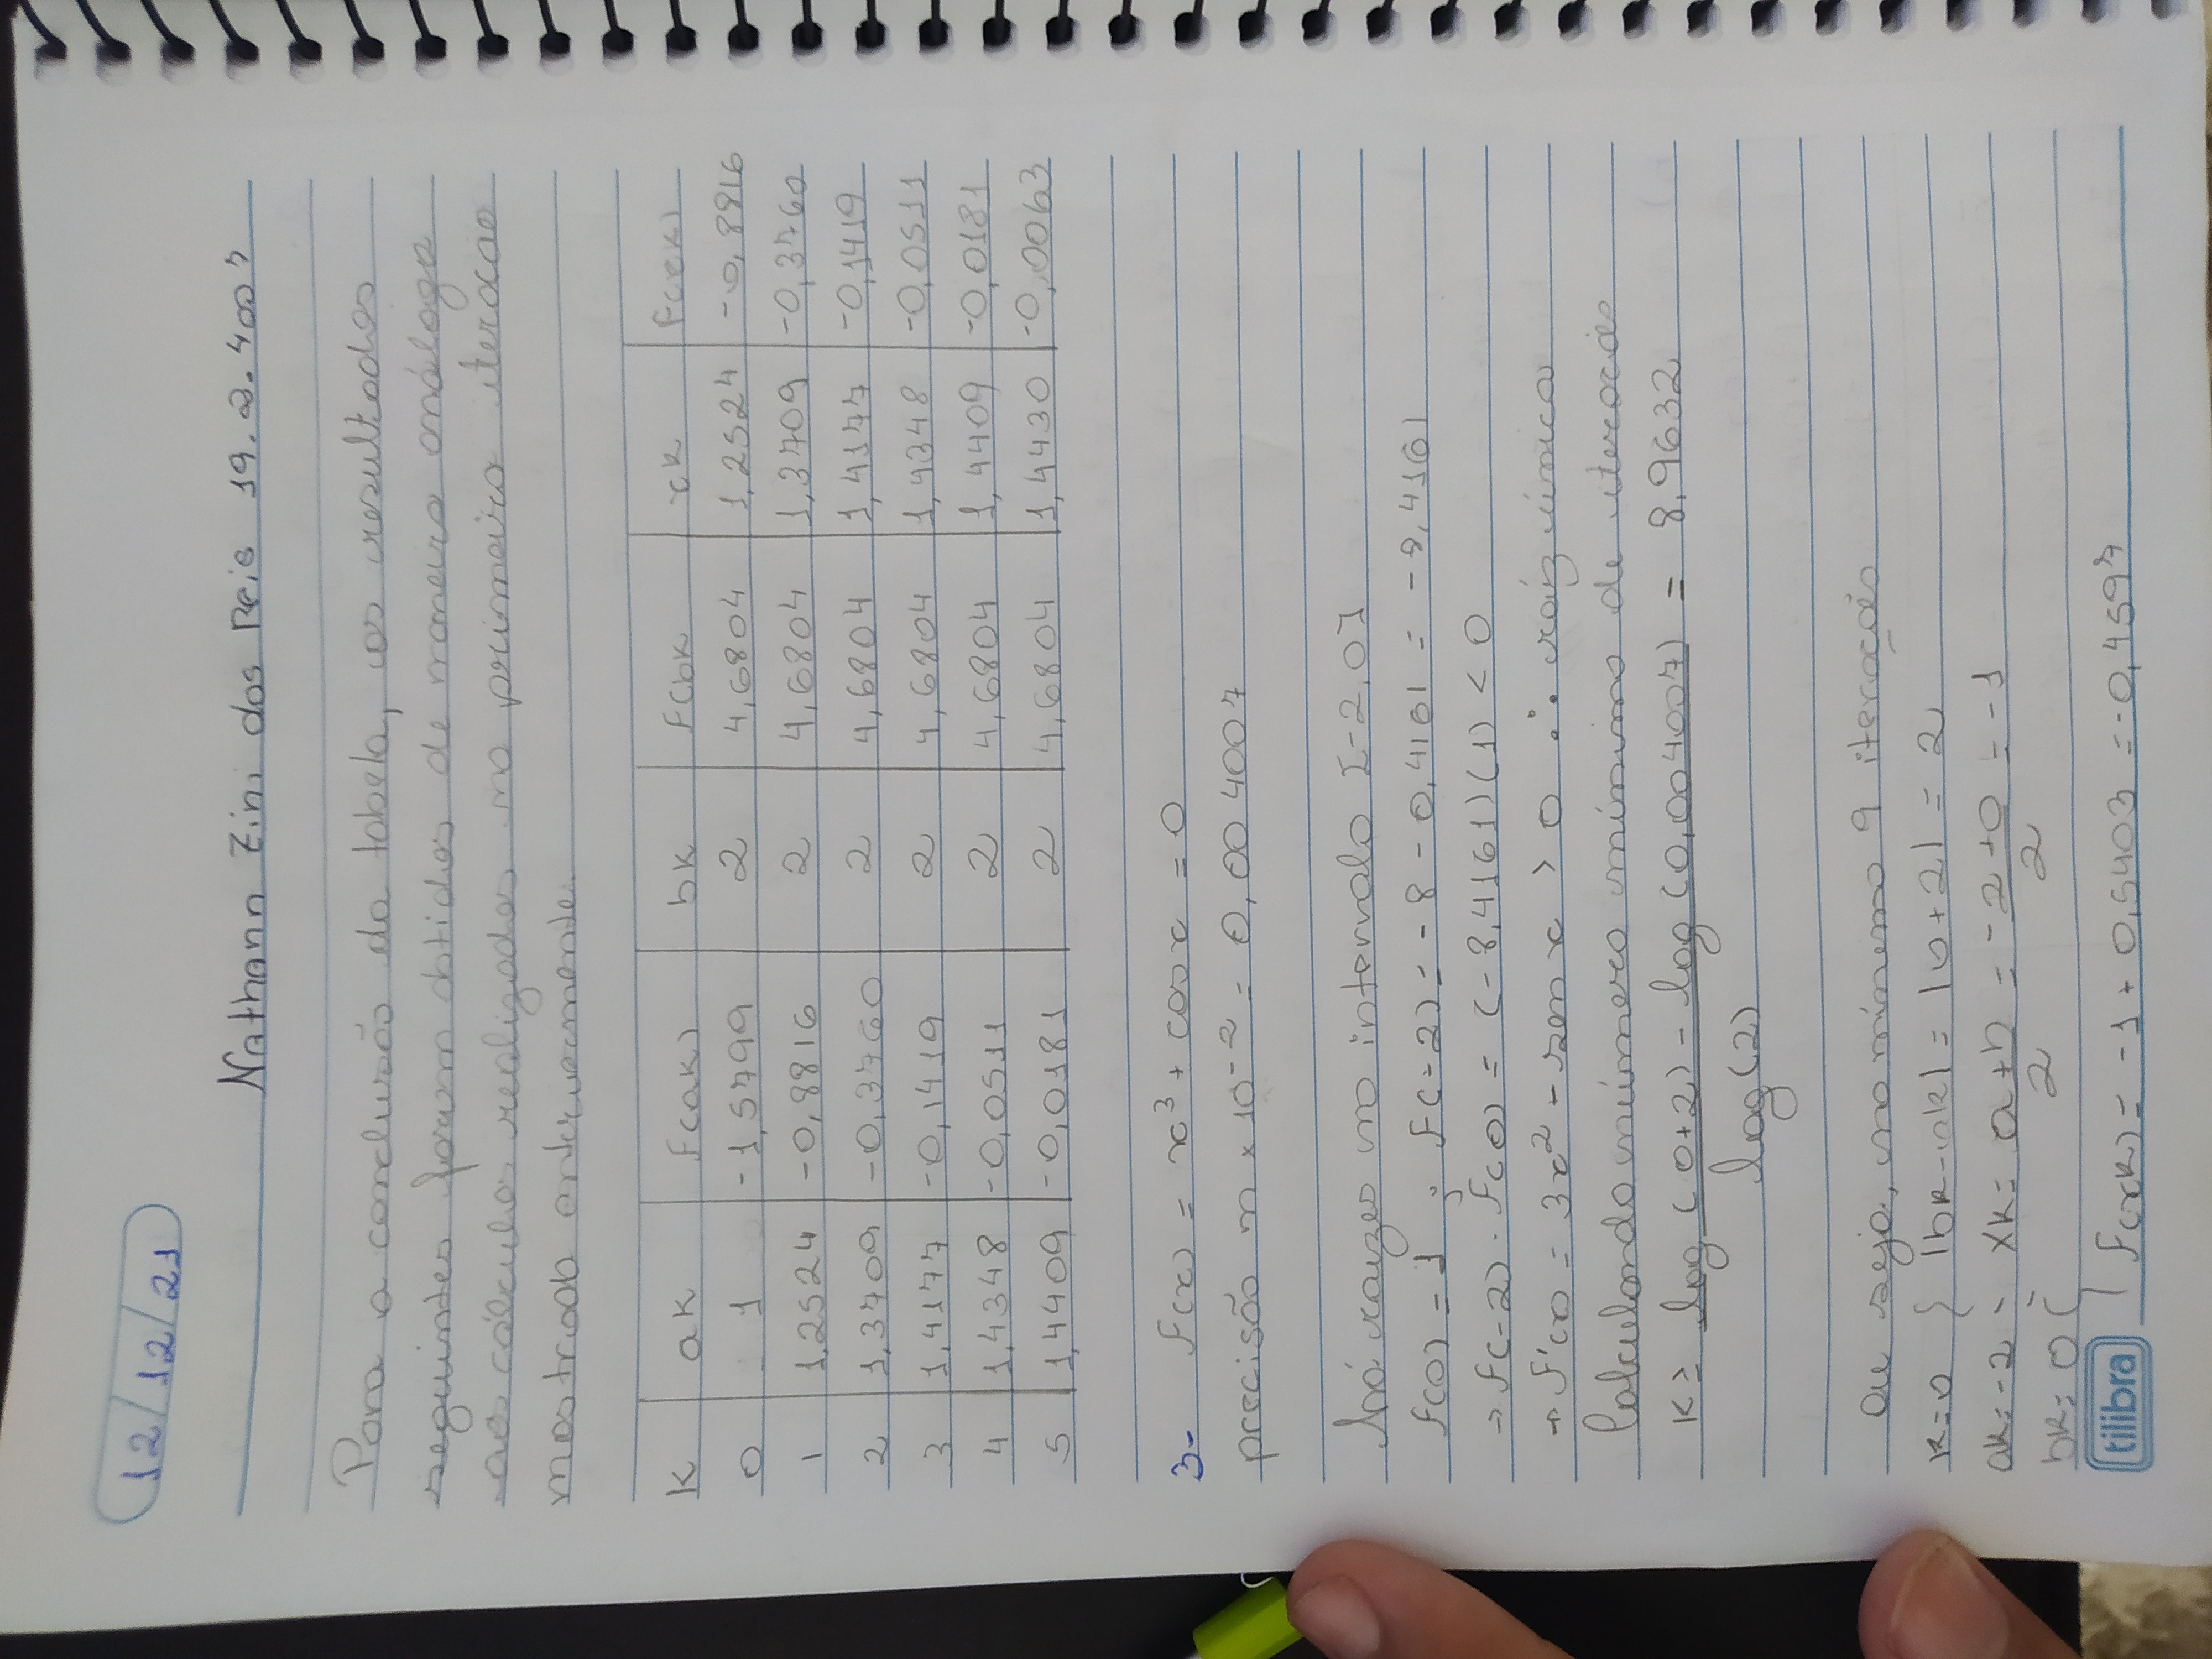 12/12/21
Nathann Zini dos Reis 19.2.4007
Para a conclusão da tabela, os resultados
seguintes foram obtidos de maneira análoga
aos cálculos realizados na primeira iteração
mostrada anteriormente.
K ak F(ak) bk F(bk xk F(xk)
0 1 -1,5799 2 4,6804 1,2524 -0,8816
1 1,2524 -0,8816 2 4,6804 1,3709 -0,3760
2 1,3709 -0,3760 2 4,6804 1,4177 -0,1419
3 1,4177 -0,1419 2 4,6804 1,4348 -0,0511
4 1,4348 -0,0511 2 4,6804 1,4409 -0,0181
5 1,4409 -0,0181 2 4,6804 1,4430 -0,0063
3- F(x) = x³ + cos x = 0
precisão m × 10⁻² = 0,004007
há raízes no intervalo [-2,0]
F(0) = 1 ; F(-2) = -8 - 0,4161 = -8,4161
→ F(-2) · F(0) = (-8,4161)(1) < 0
→ F'(x) = 3x² - sen x > 0 ∴ raíz única
Calculando número mínimo de iterações
K ≥ log(0+2) - log(0,004007) = 8,9632
log(2)
Ou seja, no mínimo 9 iteração
k=0 { |bk-ak| = |0+2| = 2
ak=-2 xk = a+b = -2+0 = -1
2 2
bk=0
F(xk) = -1 + 0,5403 = -0,4597
tilibra